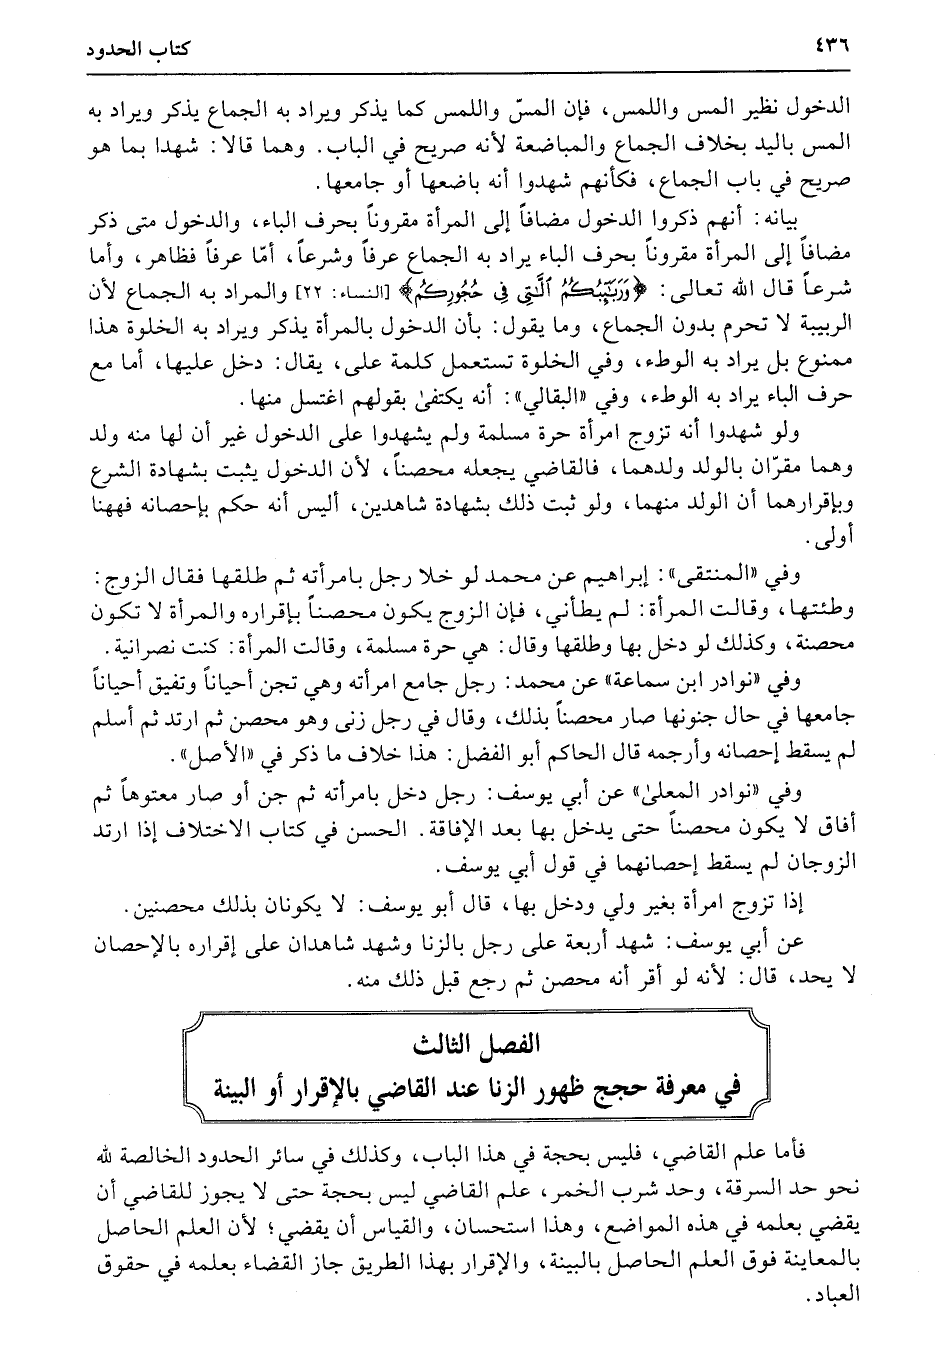 ٤٣٦
كتاب الحدود
الدخول نظير المس واللمس، فإن المسّ واللمس كما يذكر ويراد به الجماع يذكر ويراد به
المس باليد بخلاف الجماع والمباضعة لأنه صريح في الباب. وهما قالا: شهدا بما هو
صريح في باب الجماع، فكأنهم شهدوا أنه باضعها أو جامعها.
بيانه: أنهم ذكروا الدخول مضافاً إلى المرأة مقروناً بحرف الباء، والدخول متى ذكر
مضافاً إلى المرأة مقروناً بحرف الباء يراد به الجماع عرفاً وشرعاً، أمّا عرفاً فظاهر، وأما
شرعاً قال الله تعالى: ﴿وَرَبَٰٓئِبُكُمُ ٱلَّٰتِى فِى حُجُورِكُم﴾ [النساء: ٢٢] والمراد به الجماع لأن
الربيبة لا تحرم بدون الجماع، وما يقول: بأن الدخول بالمرأة يذكر ويراد به الخلوة هذا
ممنوع بل يراد به الوطء، وفي الخلوة تستعمل كلمة على، يقال: دخل عليها، أما مع
حرف الباء يراد به الوطء، وفي «البقالي»: أنه يكتفىٰ بقولهم اغتسل منها.
ولو شهدوا أنه تزوج امرأة حرة مسلمة ولم يشهدوا على الدخول غير أن لها منه ولد
وهما مقرّان بالولد ولدهما، فالقاضي يجعله محصناً، لأن الدخول يثبت بشهادة الشرع
وبإقرارهما أن الولد منهما، ولو ثبت ذلك بشهادة شاهدين، أليس أنه حكم بإحصانه فههنا
أولى.
وفي «المنتقى»: إبراهيم عن محمد لو خلا رجل بامرأته ثم طلقها فقال الزوج:
وطئتها، وقالت المرأة: لم يطأني، فإن الزوج يكون محصناً بإقراره والمرأة لا تكون
محصنة، وكذلك لو دخل بها وطلقها وقال: هي حرة مسلمة، وقالت المرأة: كنت نصرانية.
وفي «نوادر ابن سماعة» عن محمد: رجل جامع امرأته وهي تجن أحياناً وتفيق أحياناً
جامعها في حال جنونها صار محصناً بذلك، وقال في رجل زنى وهو محصن ثم ارتد ثم أسلم
لم يسقط إحصانه وأرجمه قال الحاكم أبو الفضل: هذا خلاف ما ذكر في «الأصل».
وفي «نوادر المعلىٰ» عن أبي يوسف: رجل دخل بامرأته ثم جن أو صار معتوهاً ثم
أفاق لا يكون محصناً حتى يدخل بها بعد الإفاقة. الحسن في كتاب الاختلاف إذا ارتد
الزوجان لم يسقط إحصانهما في قول أبي يوسف.
إذا تزوج امرأة بغير ولي ودخل بها، قال أبو يوسف: لا يكونان بذلك محصنين.
عن أبي يوسف: شهد أربعة على رجل بالزنا وشهد شاهدان على إقراره بالإحصان
لا يحد، قال: لأنه لو أقر أنه محصن ثم رجع قبل ذلك منه.
الفصل الثالث
في معرفة حجج ظهور الزنا عند القاضي بالإقرار أو البينة
فأما علم القاضي، فليس بحجة في هذا الباب، وكذلك في سائر الحدود الخالصة لله
نحو حد السرقة، وحد شرب الخمر، علم القاضي ليس بحجة حتى لا يجوز للقاضي أن
يقضي بعلمه في هذه المواضع، وهذا استحسان، والقياس أن يقضي؛ لأن العلم الحاصل
بالمعاينة فوق العلم الحاصل بالبينة، والإقرار بهذا الطريق جاز القضاء بعلمه في حقوق
العباد.